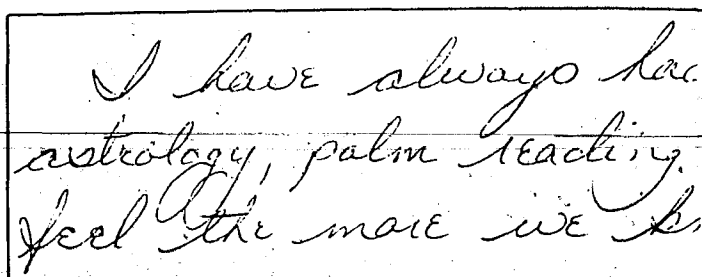 I have always had
astrology, palm reading,
feel the more we